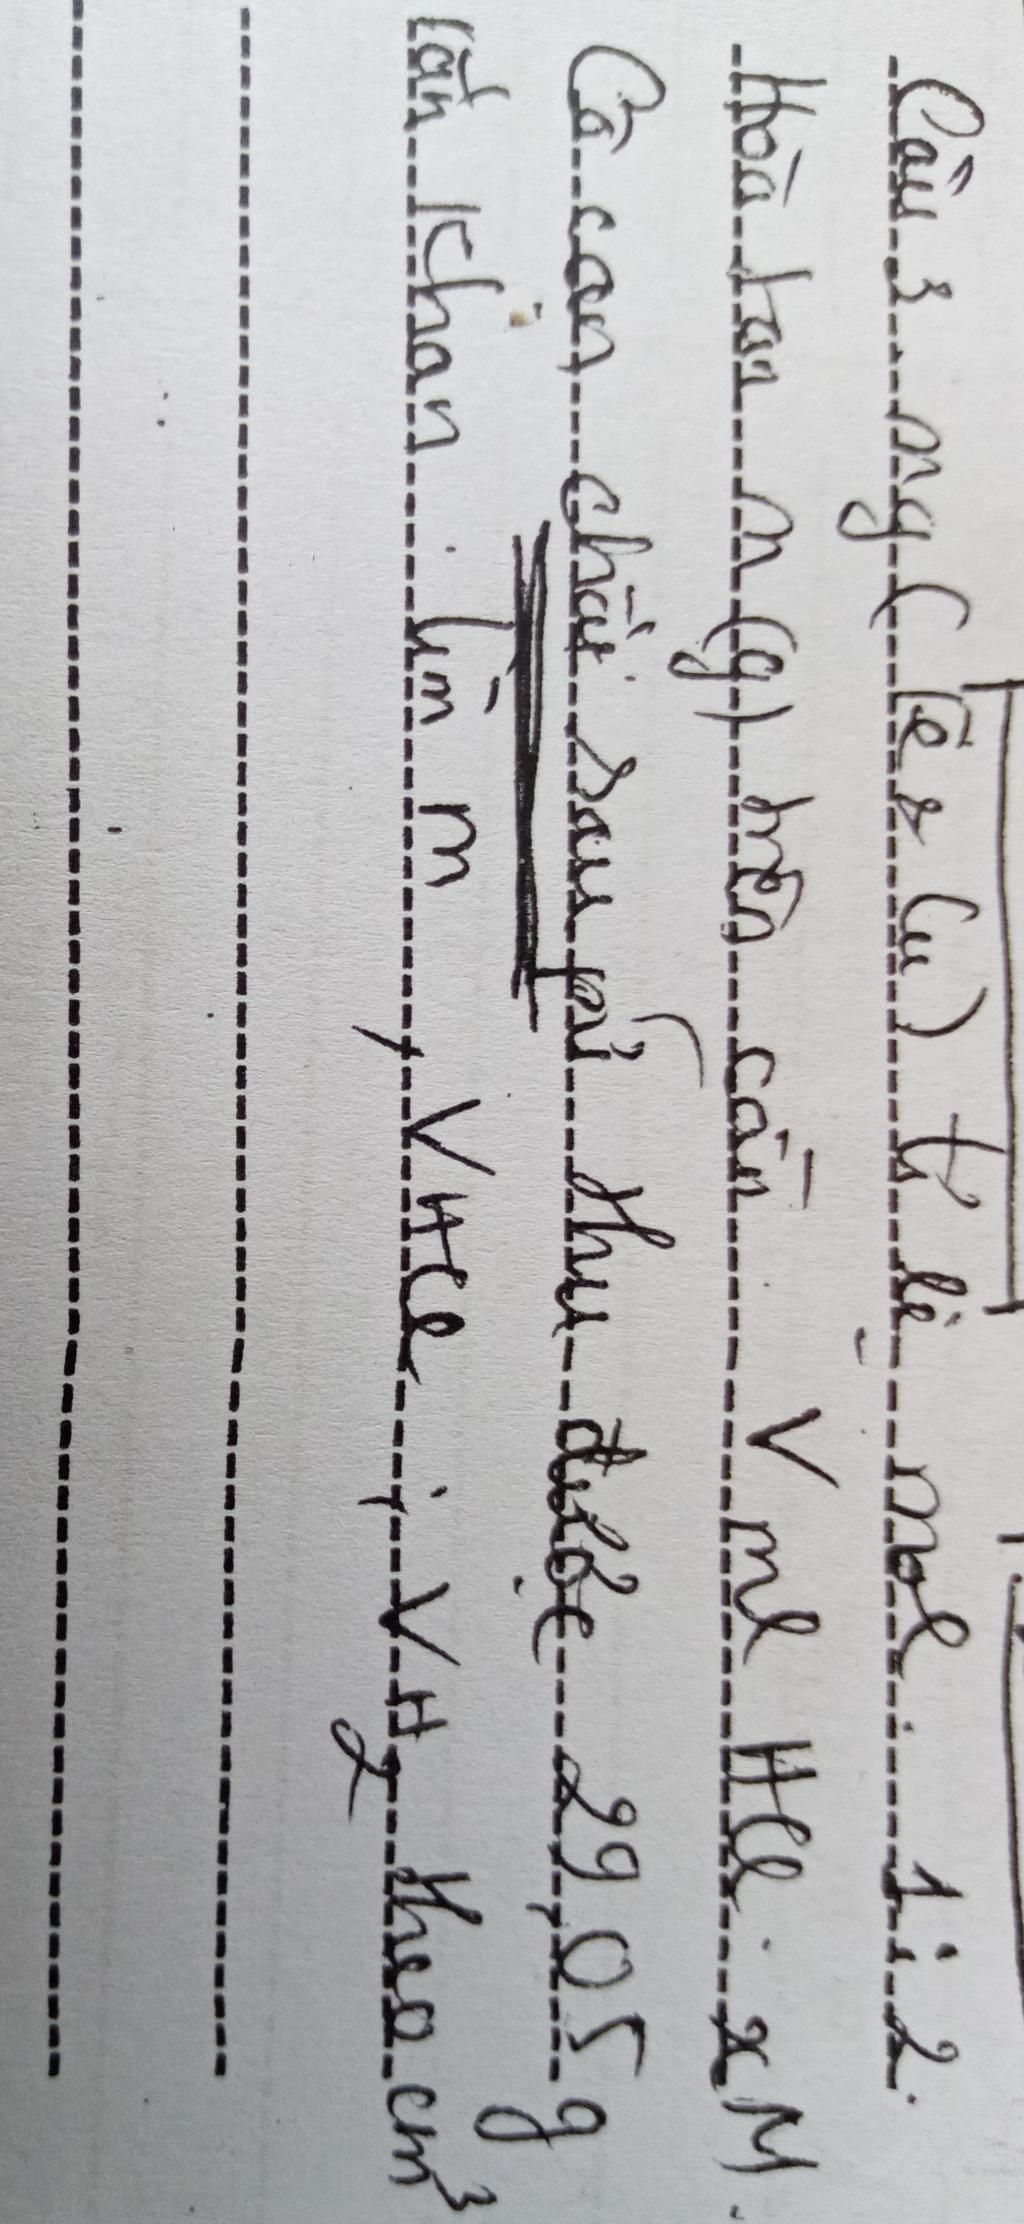 Câu 3 mg ( Fe & Cu ) tỉ lệ mol 1 : 2.
Hòa tan m (g) trên cần V ml HCl xM.
Cô cạn chất sau pứ thu được 29,05 g
rắn khan. Tìm m, VHCl ; VH2 theo cm³